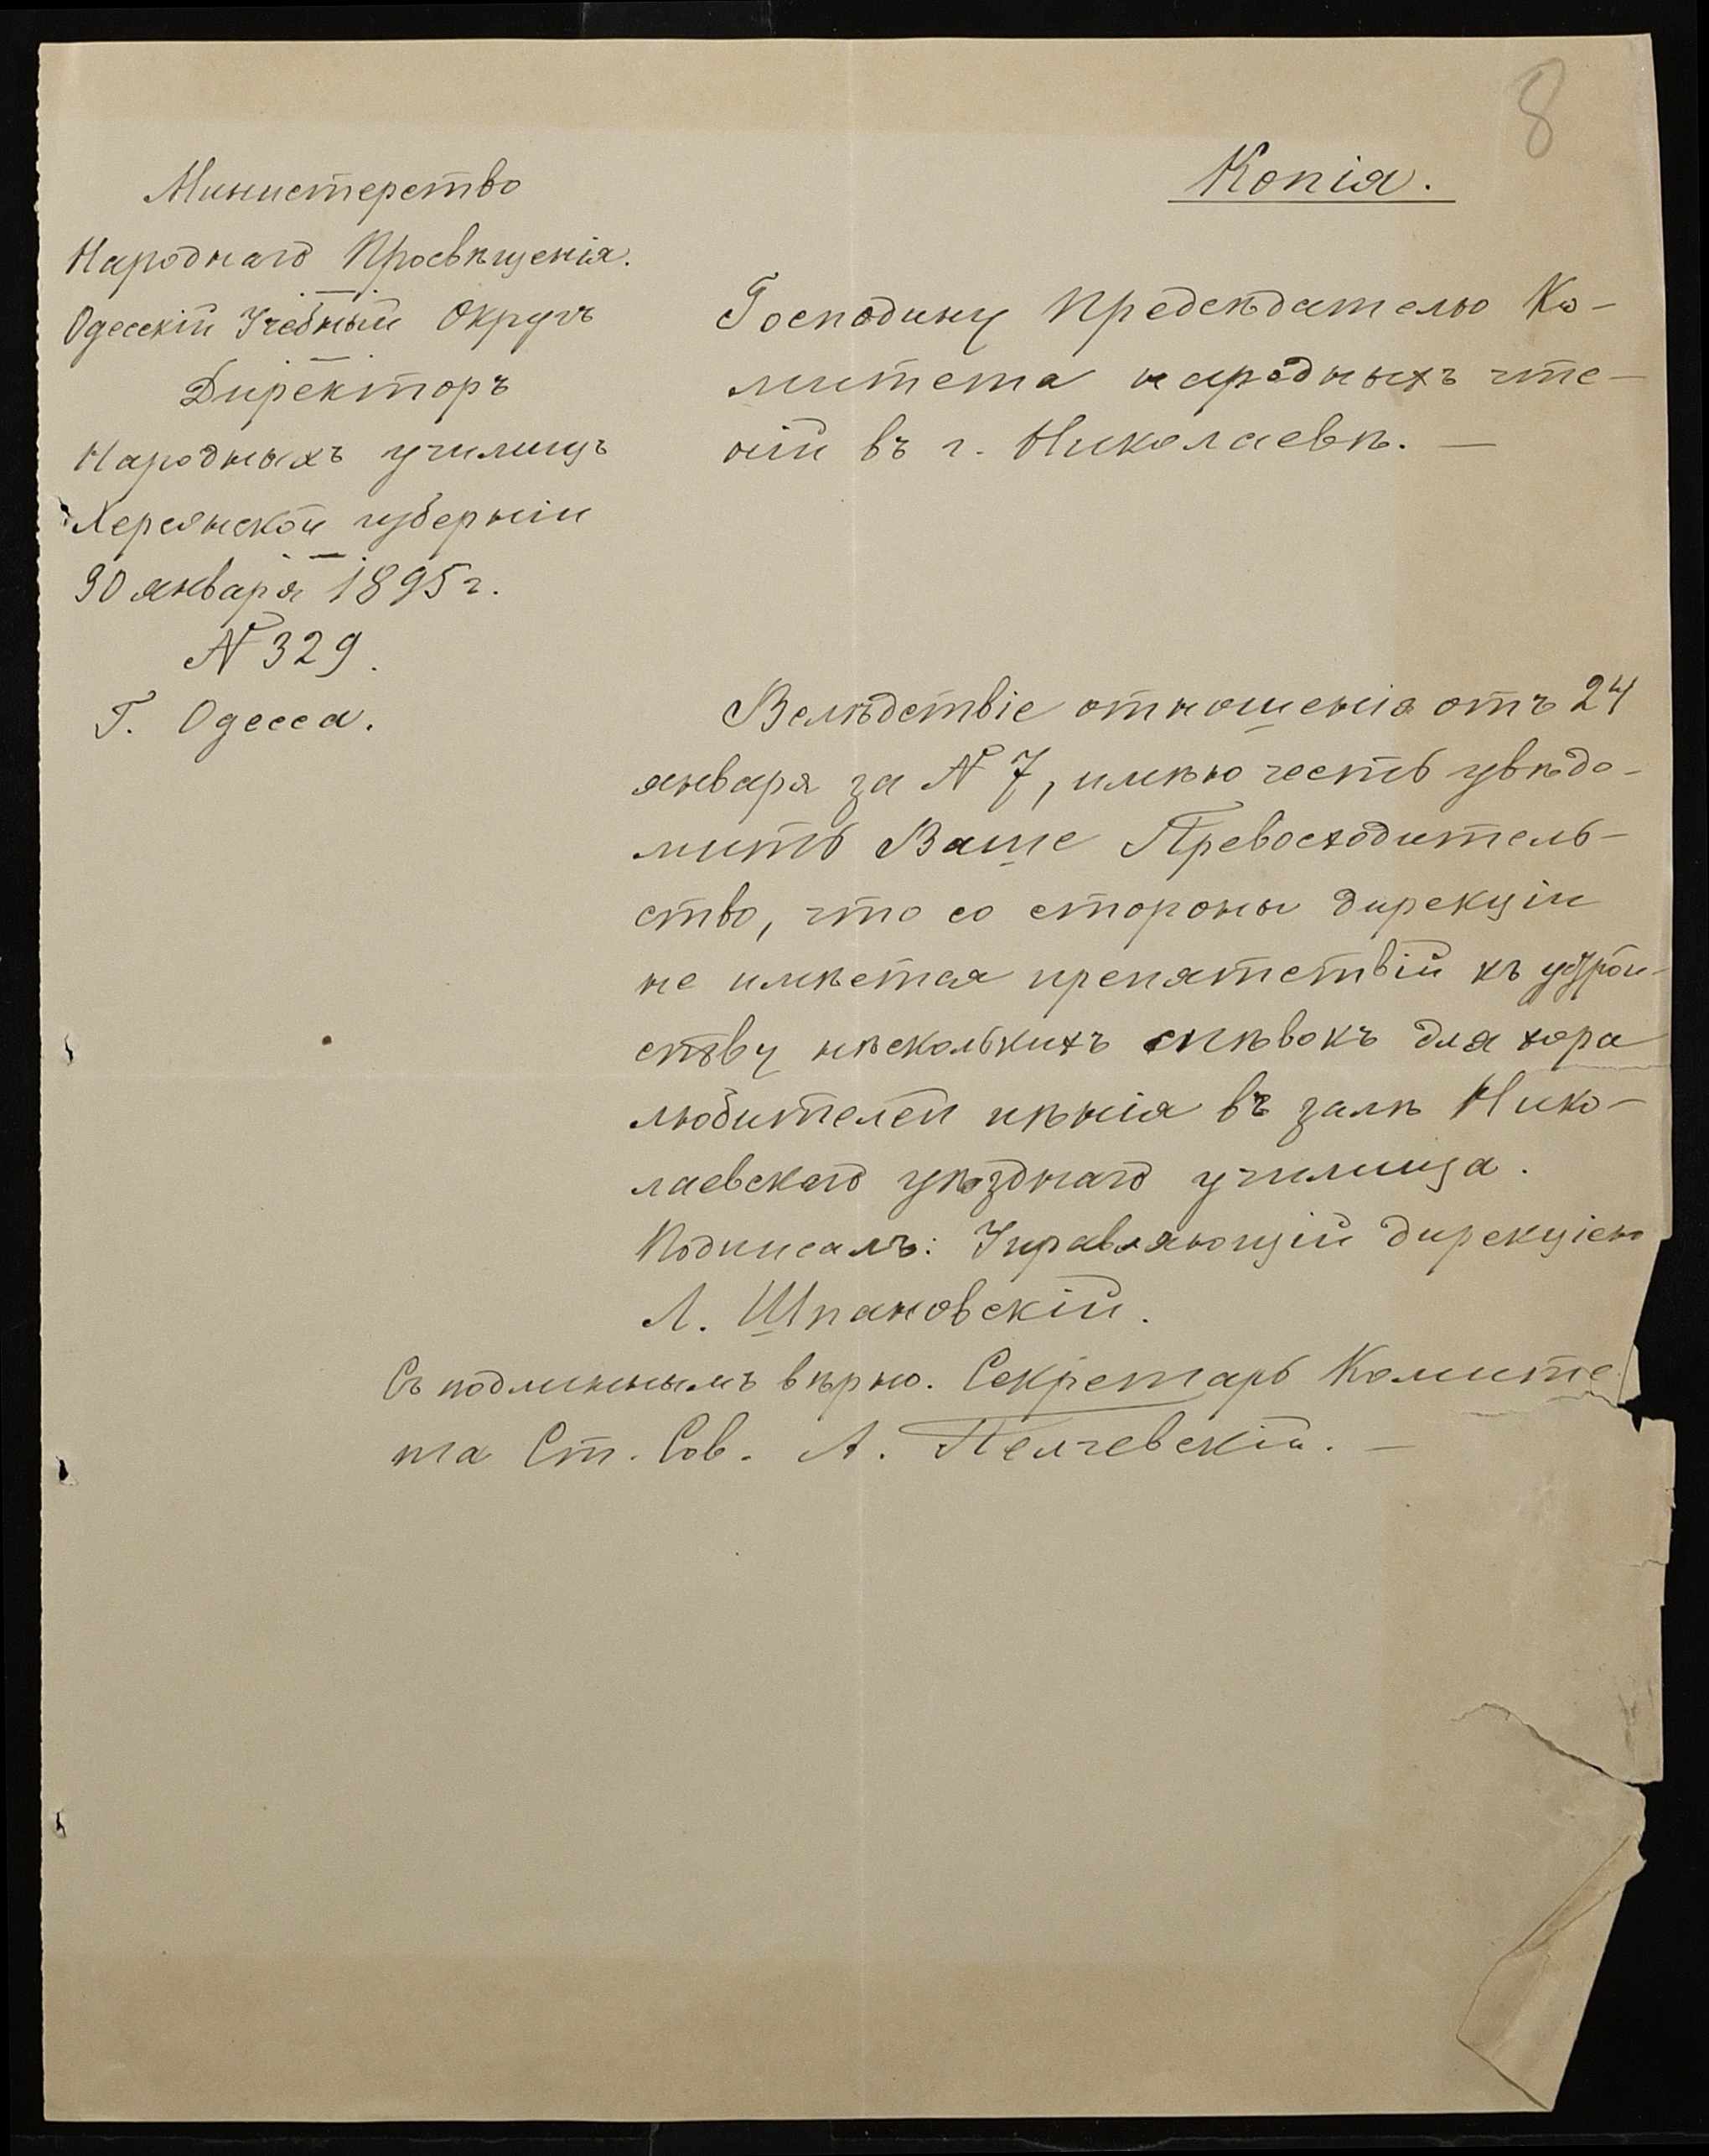 8
Копія.
Министерство
Народнаго Просвѣщенія.
Одесскій Учебный Округъ
Директоръ
Народныхъ училищъ
Херсонской губерніи
30 января 1895 г.
№ 329.
Г. Одесса.
Господину Предсѣдателю Ко-
митета народныхъ чте-
ній въ г. Николаевѣ. —
Вслѣдствіе отношенія отъ 24
января за № 7, имѣю честь увѣдо-
мить Ваше Превосходитель-
ство, что со стороны дирекціи
не имѣется препятствій къ устрой-
ству нѣсколькихъ спѣвокъ для хора
любителей пѣнія въ залѣ Нико-
лаевскаго уѣзднаго училища.
Подписалъ: Управляющій дирекціею
Л. Шпаковскій.
Съ подлиннымъ вѣрно. Секретарь Комите-
та Ст. Сов. А. Пелчевскій. —